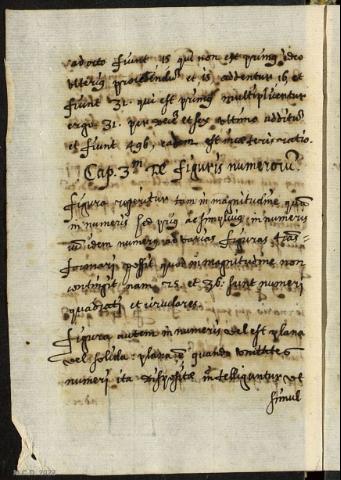 ad octo fiunt 15 qui non est primus ideo
ulterius et 15 addentur 16 et
fiunt 31. qui est primus multiplicentur
ergo 31. per sex ultimo additus
et fiunt 496. eadem est in ceteris ratio.
Cap. 3m De figuris numerorũ.
Figura reperitur tam in magnitudine quam
in numeris sed prius ac simplicius in numeris
idem numerus ad varias figuras
formari possit quod in magnitudine non
contingit nam 25. et 36. sunt numeri
quadrati et circulares.
Figura autem in numeris vel est plana
vel solida: plana quando omittes
numeri ita dispositæ intelliguntur ut
simul